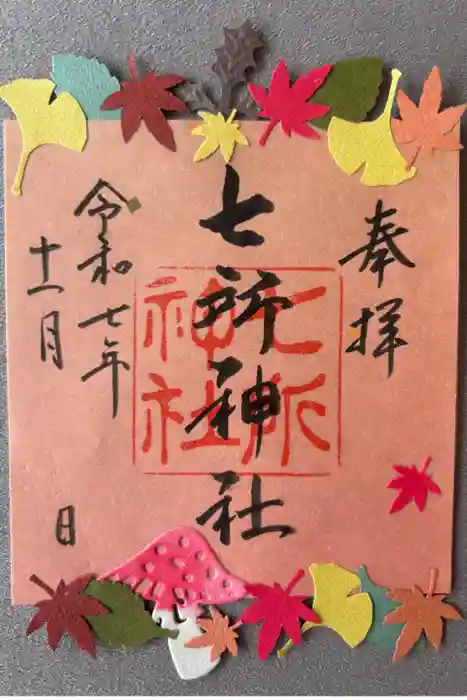 奉拝
七所神社
七所
神社
令和七年
十一月
日